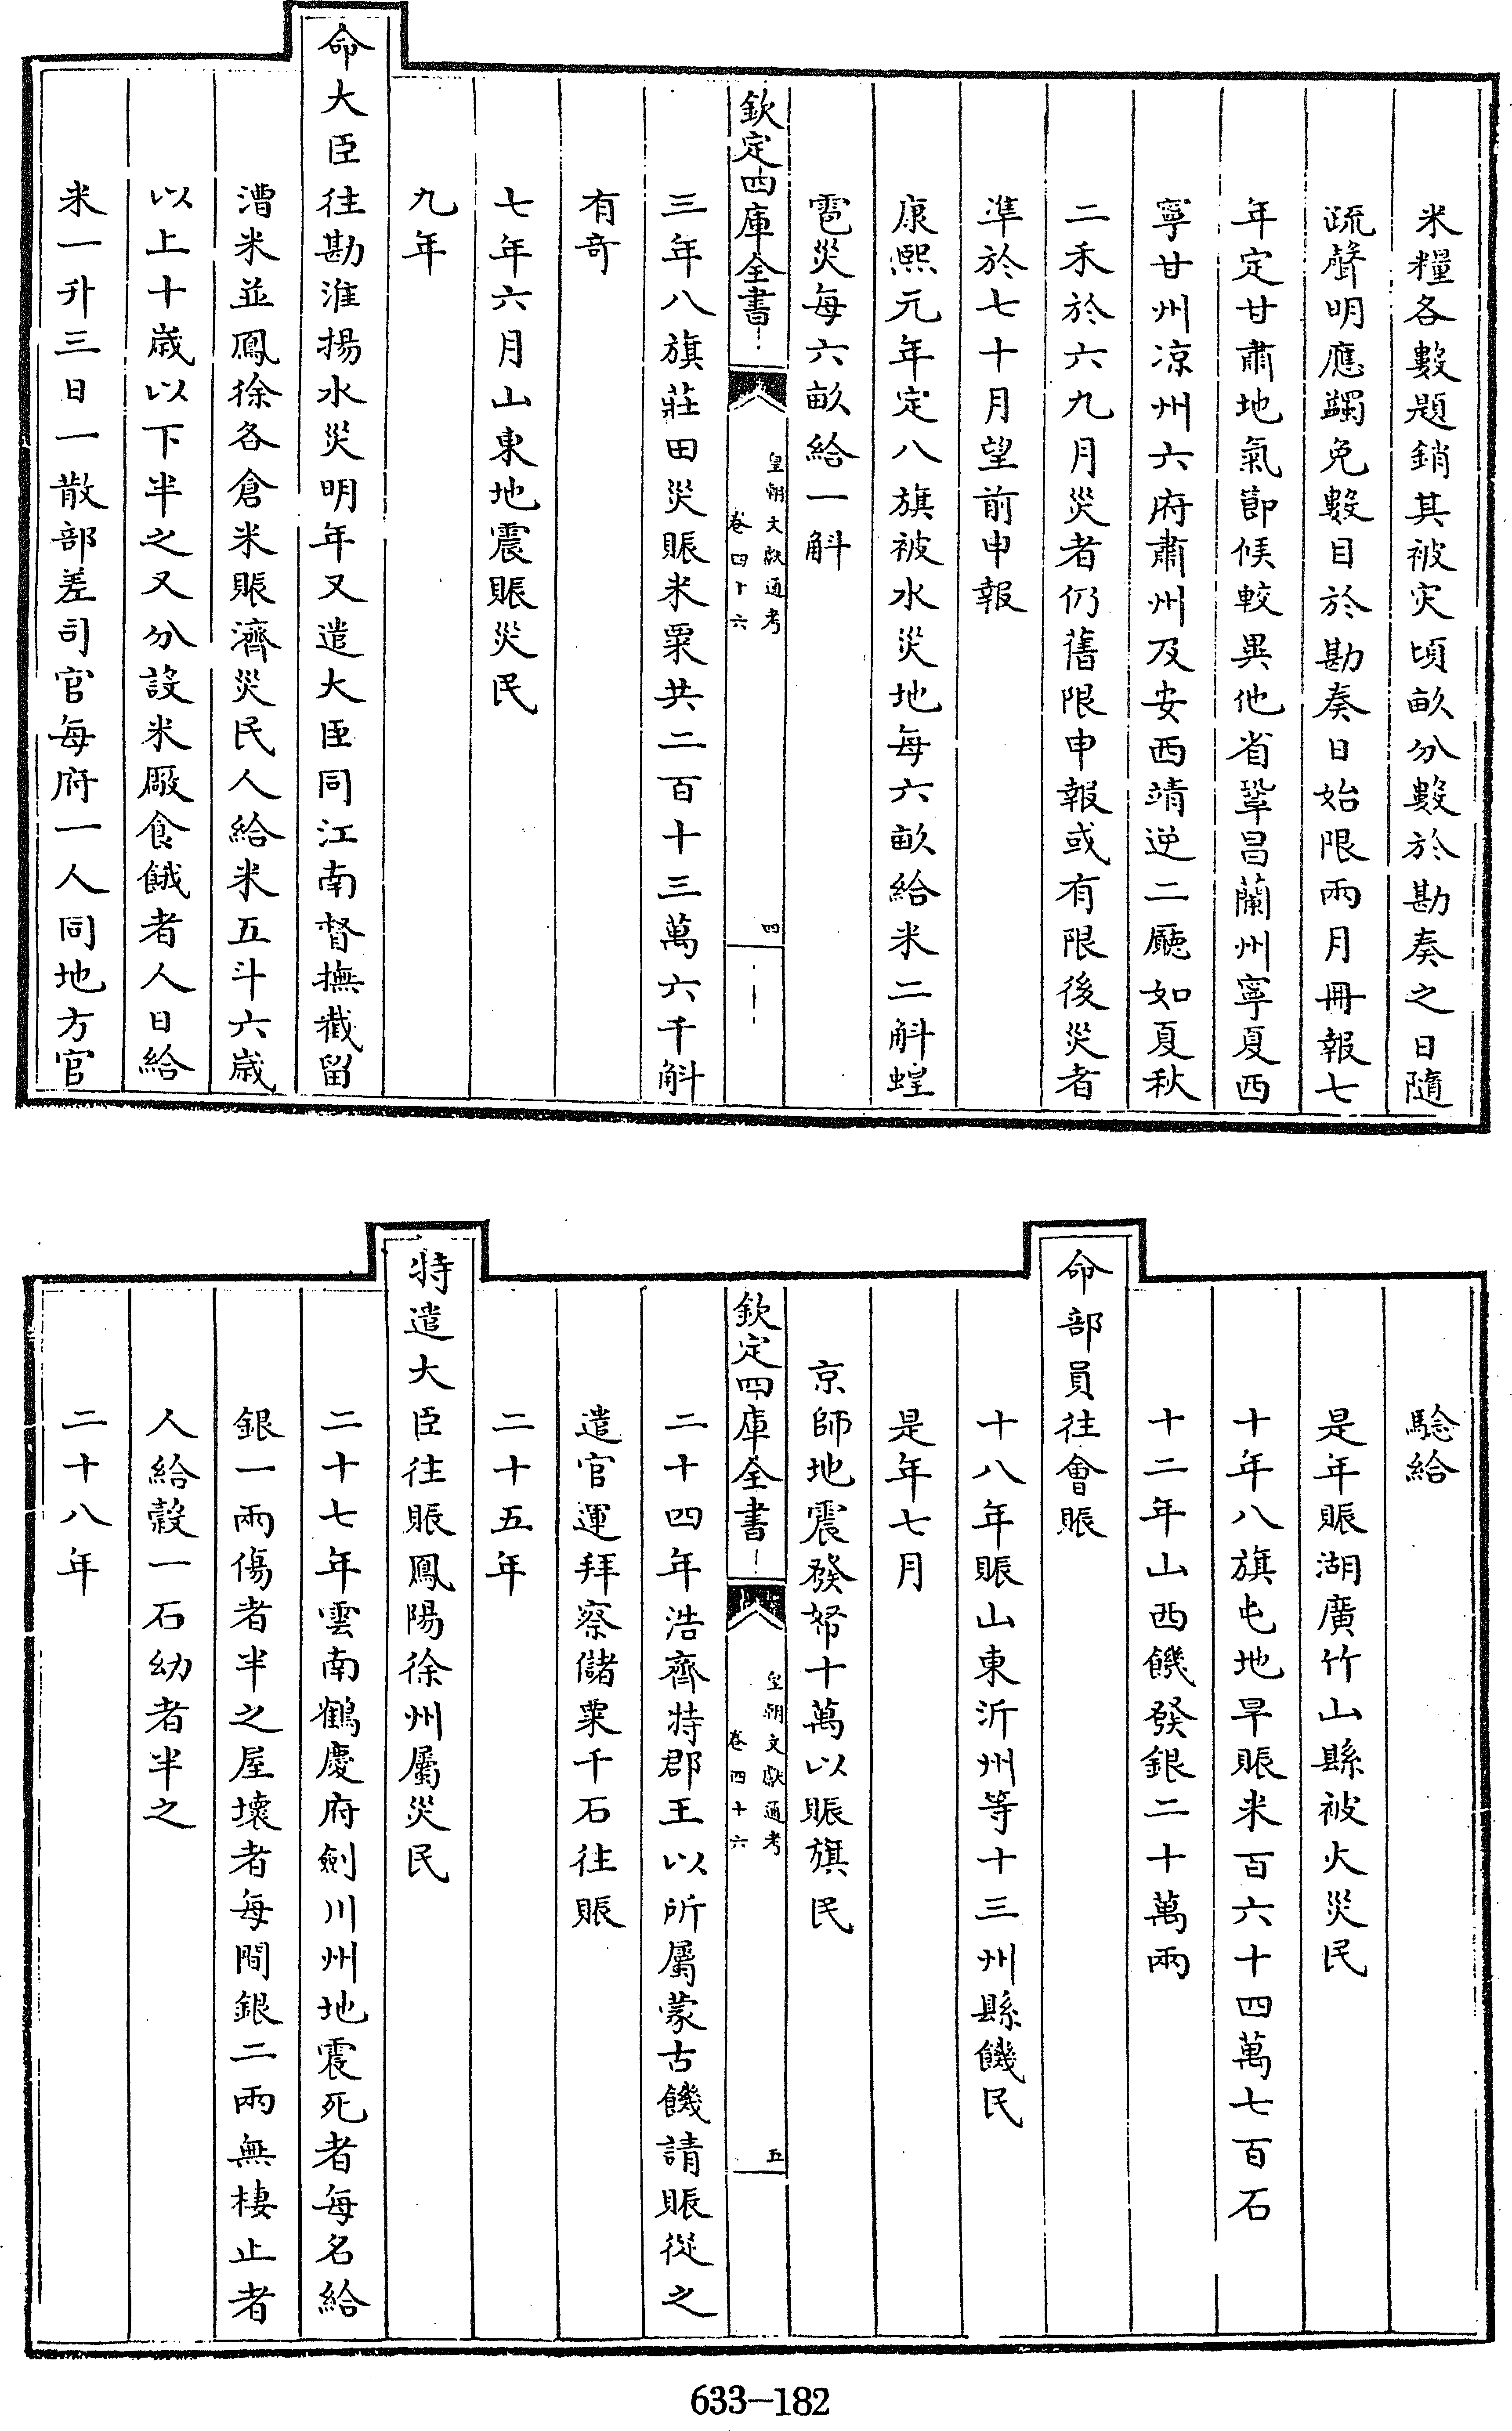 米糧各數題銷其被灾頃畝分數於勘奏之日隨
疏聲明應蠲免數目於勘奏日始限兩月冊報七
年定甘肅地氣節候較異他省鞏昌蘭州寧夏西
寧甘州凉州六府肅州及安西靖逆二廳如夏秋
二禾於六九月災者仍舊限申報或有限後災者
準於七十月望前申報
康熙元年定八旗被水災地每六畝給米二斛蝗
雹災每六畝給一斛
欽定四庫全書
皇朝文獻通考
卷四十六
四
三年八旗莊田災賬米粟共二百十三萬六千斛
有奇
七年六月山東地震賬災民
九年
命大臣往勘淮揚水災明年又遣大臣同江南督撫截留
漕米並鳳徐各倉米賬濟災民人給米五斗六歲
以上十歲以下半之又分設米厰食餓者人日給
米一升三日一散部差司官每府一人同地方官
驗給
是年賬湖廣竹山縣被火災民
十年八旗屯地旱賬米百六十四萬七百石
十二年山西饑發銀二十萬兩
命部員往會賬
十八年賬山東沂州等十三州縣饑民
是年七月
京師地震發帑十萬以賬旗民
欽定四庫全書
皇朝文獻通考
卷四十六
五
二十四年浩齊特郡王以所屬蒙古饑請賬從之
遣官運拜察儲粟千石往賬
二十五年
特遣大臣往賬鳳陽徐州屬災民
二十七年雲南鶴慶府劍川州地震死者每名給
銀一兩傷者半之屋壞者每間銀二兩無棲止者
人給穀一石幼者半之
二十八年
633-182